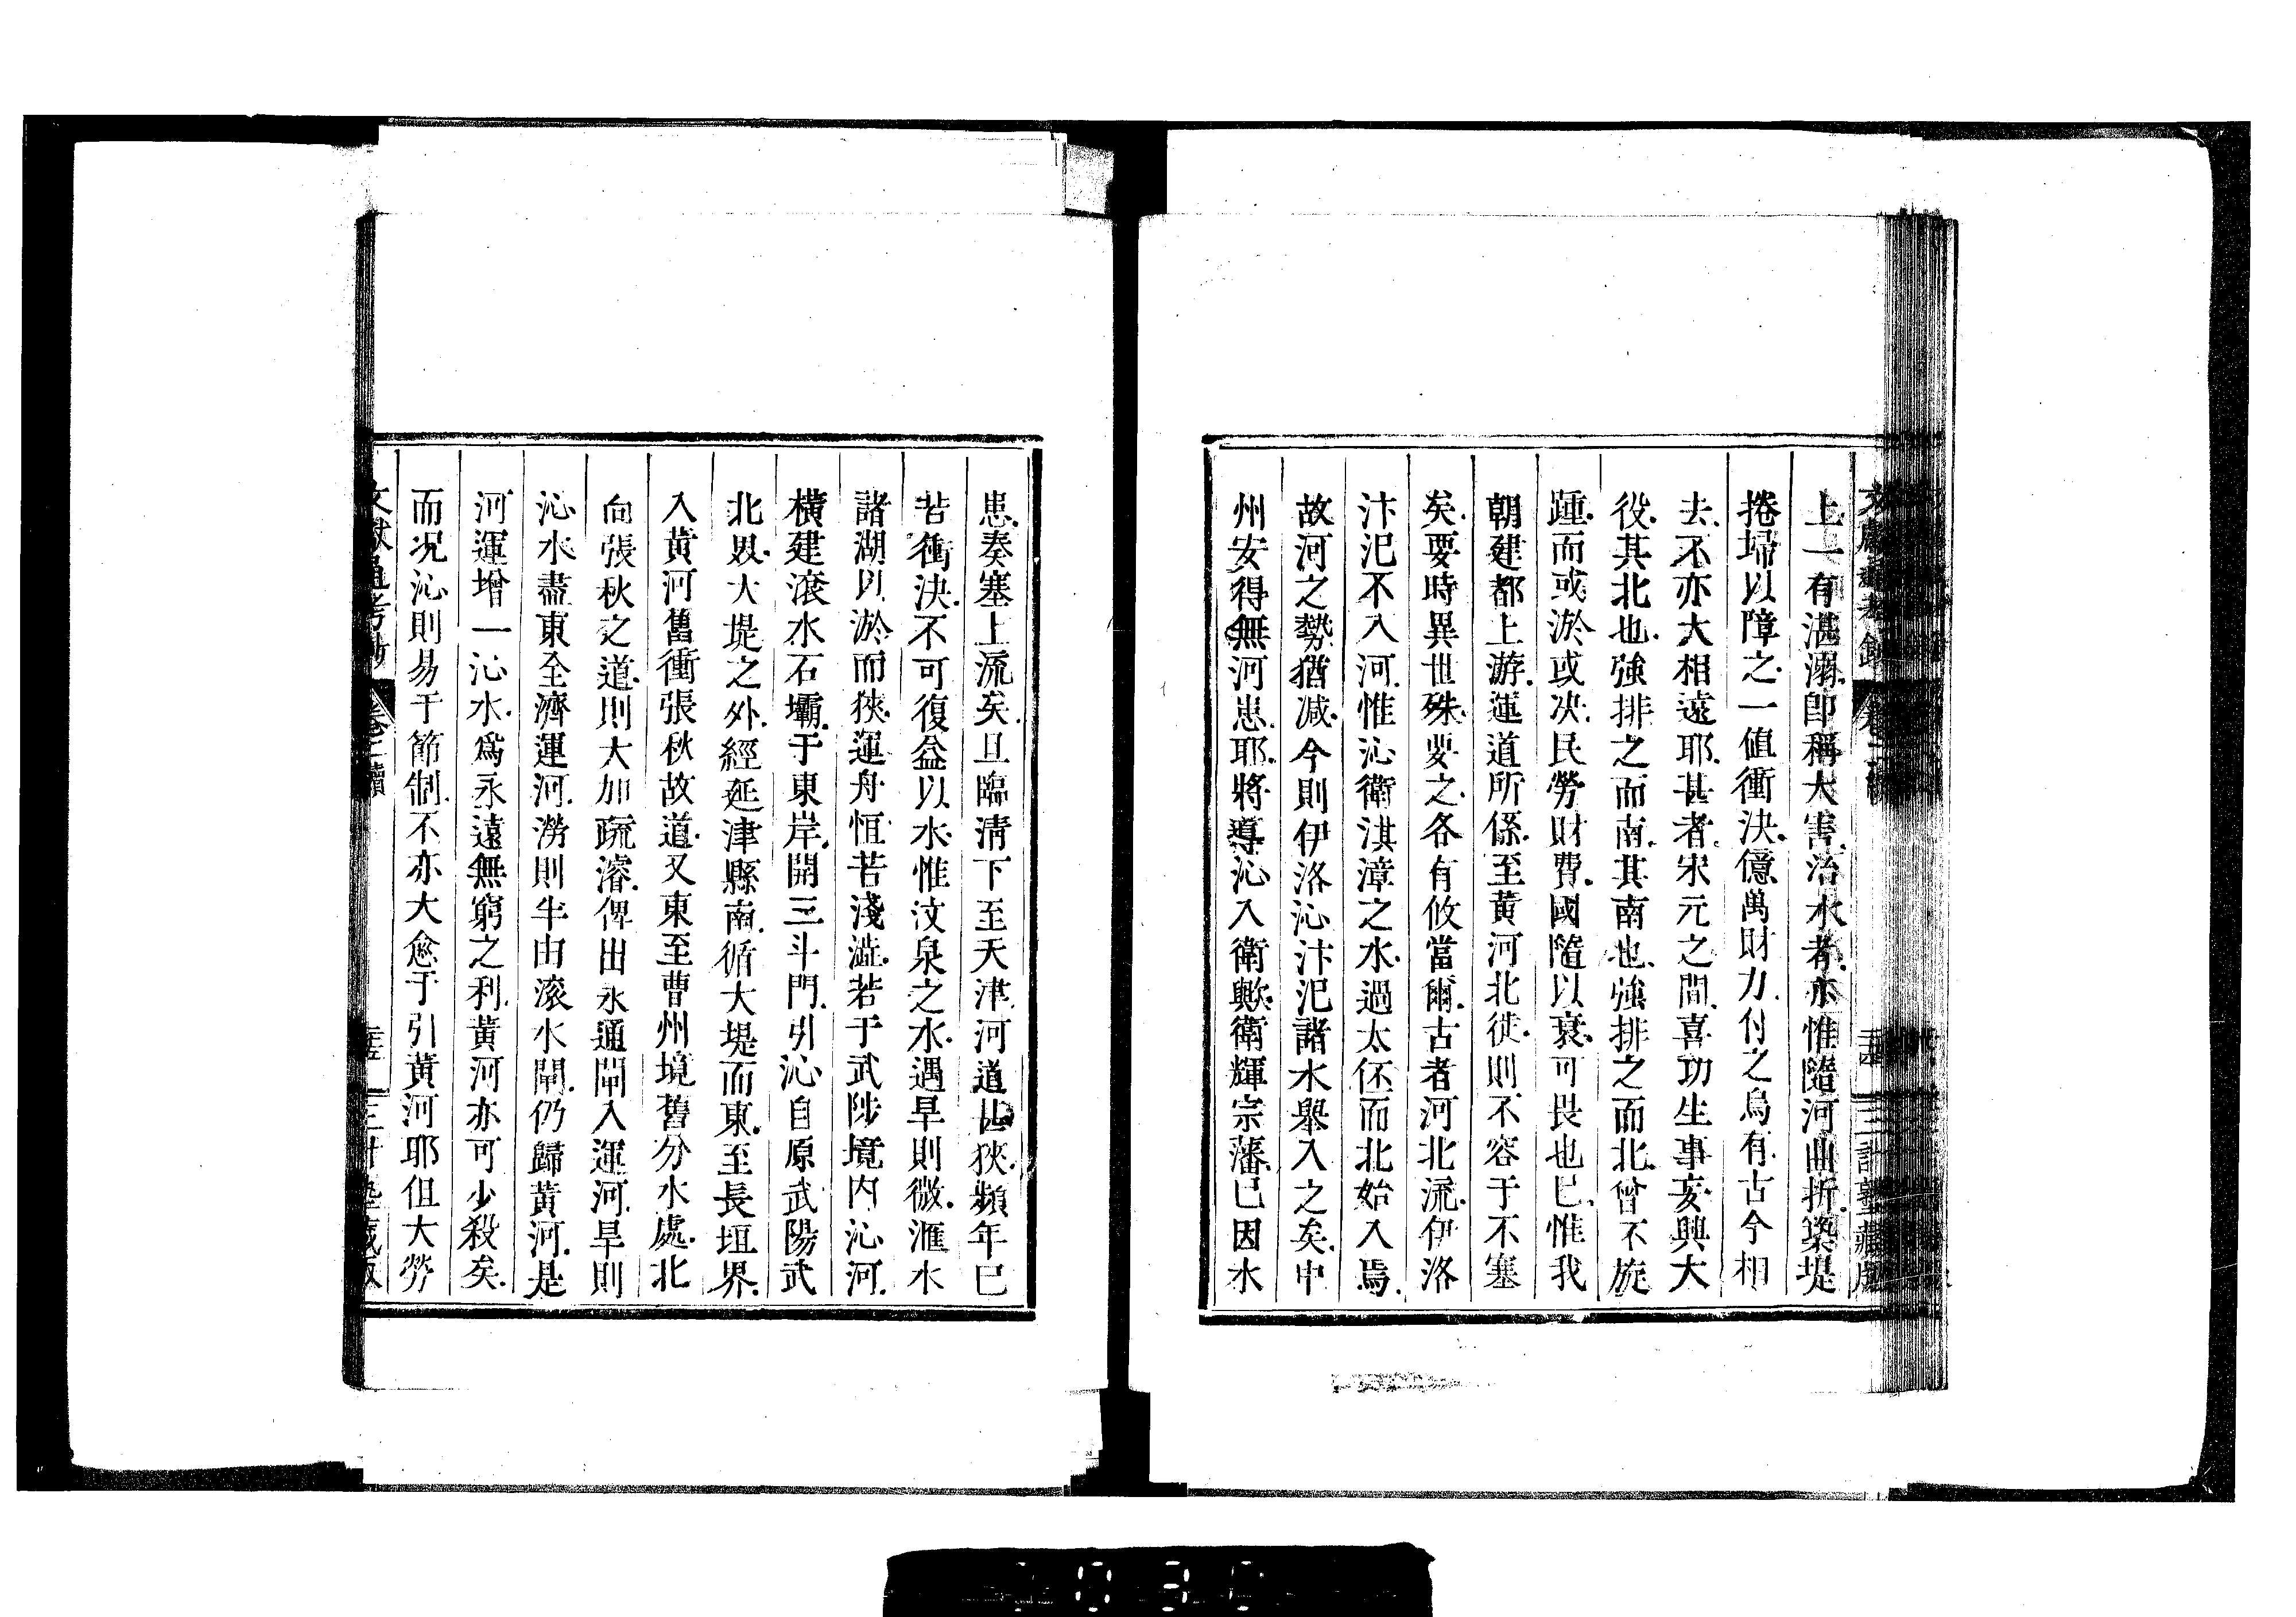 上一有湛溺卽稱大害治水者亦惟隨河曲折築堤
捲埽以障之一值衝決億萬財力付之烏有古今相
去不亦大相遠耶甚者宋元之間喜功生事妄興大
役其北也強排之而南其南也強排之而北曾不旋
踵而或淤或决民勞財費國隨以衰可畏也已惟我
朝建都上游運道所係至黃河北徙則不容于不塞
矣要時異世殊要之各有攸當爾古者河北流伊洛
汴汜不入河惟沁衛淇漳之水過太伾而北始入焉
故河之勢猶减今則伊洛沁汴汜諸水舉入之矣中
州安得無河患耶將導沁入衛歟衛輝宗藩已因水
患奏塞上流矣且臨淸下至天津河道甚狹頻年已
苦衝決不可復益以水惟汶泉之水遇旱則微滙水
諸湖以淤而狹運舟恒苦淺澁若于武陟境内沁河
橫建滾水石壩于東岸開三斗門引沁自原武陽武
北界大堤之外經延津縣南循大堤而東至長垣界
入黃河舊衝張秋故道又東至曹州境舊分水處北
向張秋之道則大加疏濬俾由永通閘入運河旱則
沁水盡東全濟運河澇則半由滚水閘仍歸黃河是
河運增一沁水爲永遠無窮之利黃河亦可少殺矣
而况沁則易于節制不亦大愈于引黃河耶但大勞
文獻通考鈔 卷二續 三計塾藏版